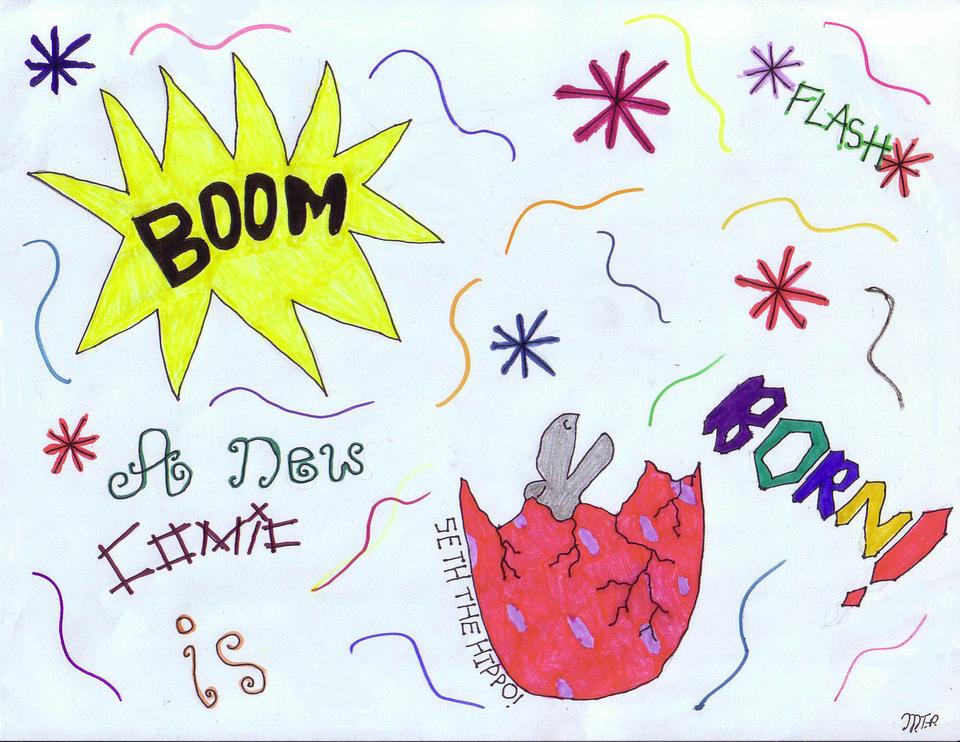 BOOM
FLASH
A New
COMIC
is
BORN!
SETH THE HIPPO!